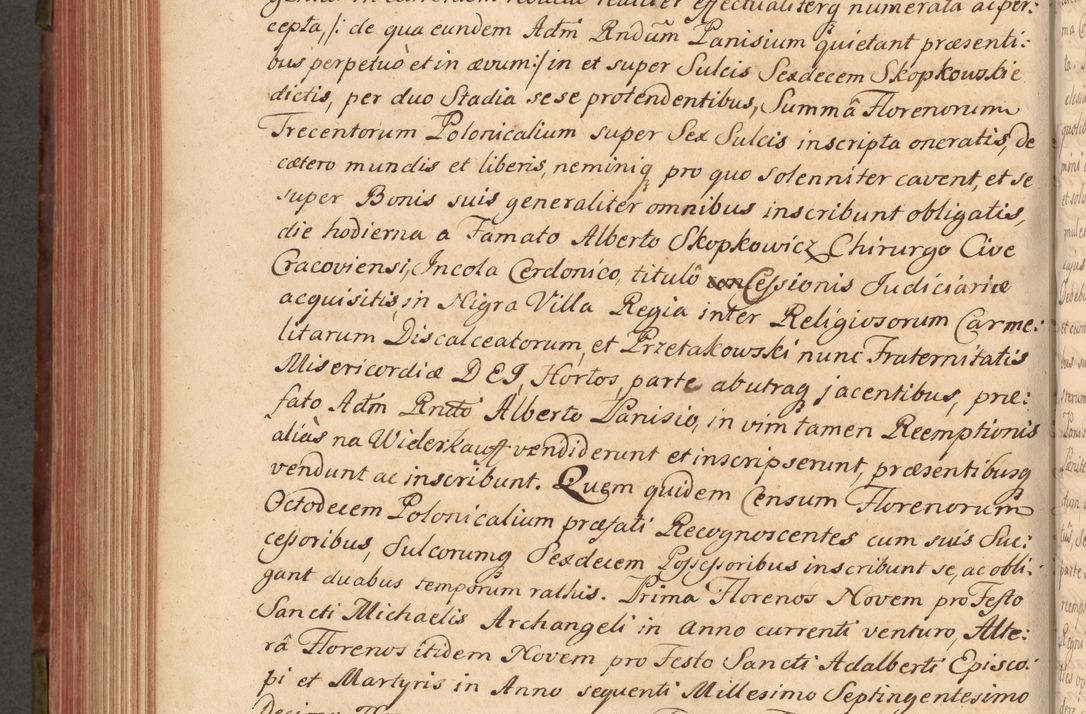 cepta,/: de qua eundem Adm Rndũm Panisium quietant præsenti:
bus perpetuò et in ævum:/ in et super Sulcis Sexdecem Skopkowskie
dictis, per duo Stadia sese protendentibus, Summâ Florenorum
Trecentorum Polonicalium super Sex Sulcis inscripta oneratis, de
cætero mundis et liberis, neminiq pro quo solenniter cavent, et se
super Bonis suis generaliter omnibus inscribunt obligatis,
die hodierna a Famato Alberto Skopkowicz Chirurgo Cive
Cracoviensi, Incola Cerdonico, titulô Cessionis Judiciariæ
acquisitis, in Nigra Villa Regia inter Religiosorum Carme:
litarum Discalceatorum, et Przetakowski nunc Fraternitatis
Misericordiæ DEI, Hortos, parte abutraq jacentibus, præ:
fato Adm Rndo Alberto Panisio, in vim tamen Reemptionis
aliàs na Widerkauff vendiderunt et inscripserunt, præsentibusq
vendunt ac inscribunt. Quem quidem Censum Florenorum
Octodecem Polonicalium præfati Recognoscentes cum suis Suc:
cessoribus, Sulcorumq Sexdecem Possessoribus inscribunt se, ac obli:
gant duabus temporum rathis. Prima Florenos Novem pro Festo
Sancti Michaelis Archangeli in Anno currenti venturo, Alte:
râ Florenos itidem Novem pro Festo Sancti Adalberti Episco:
pi et Martyris in Anno sequenti Millesimo Septingentesimo